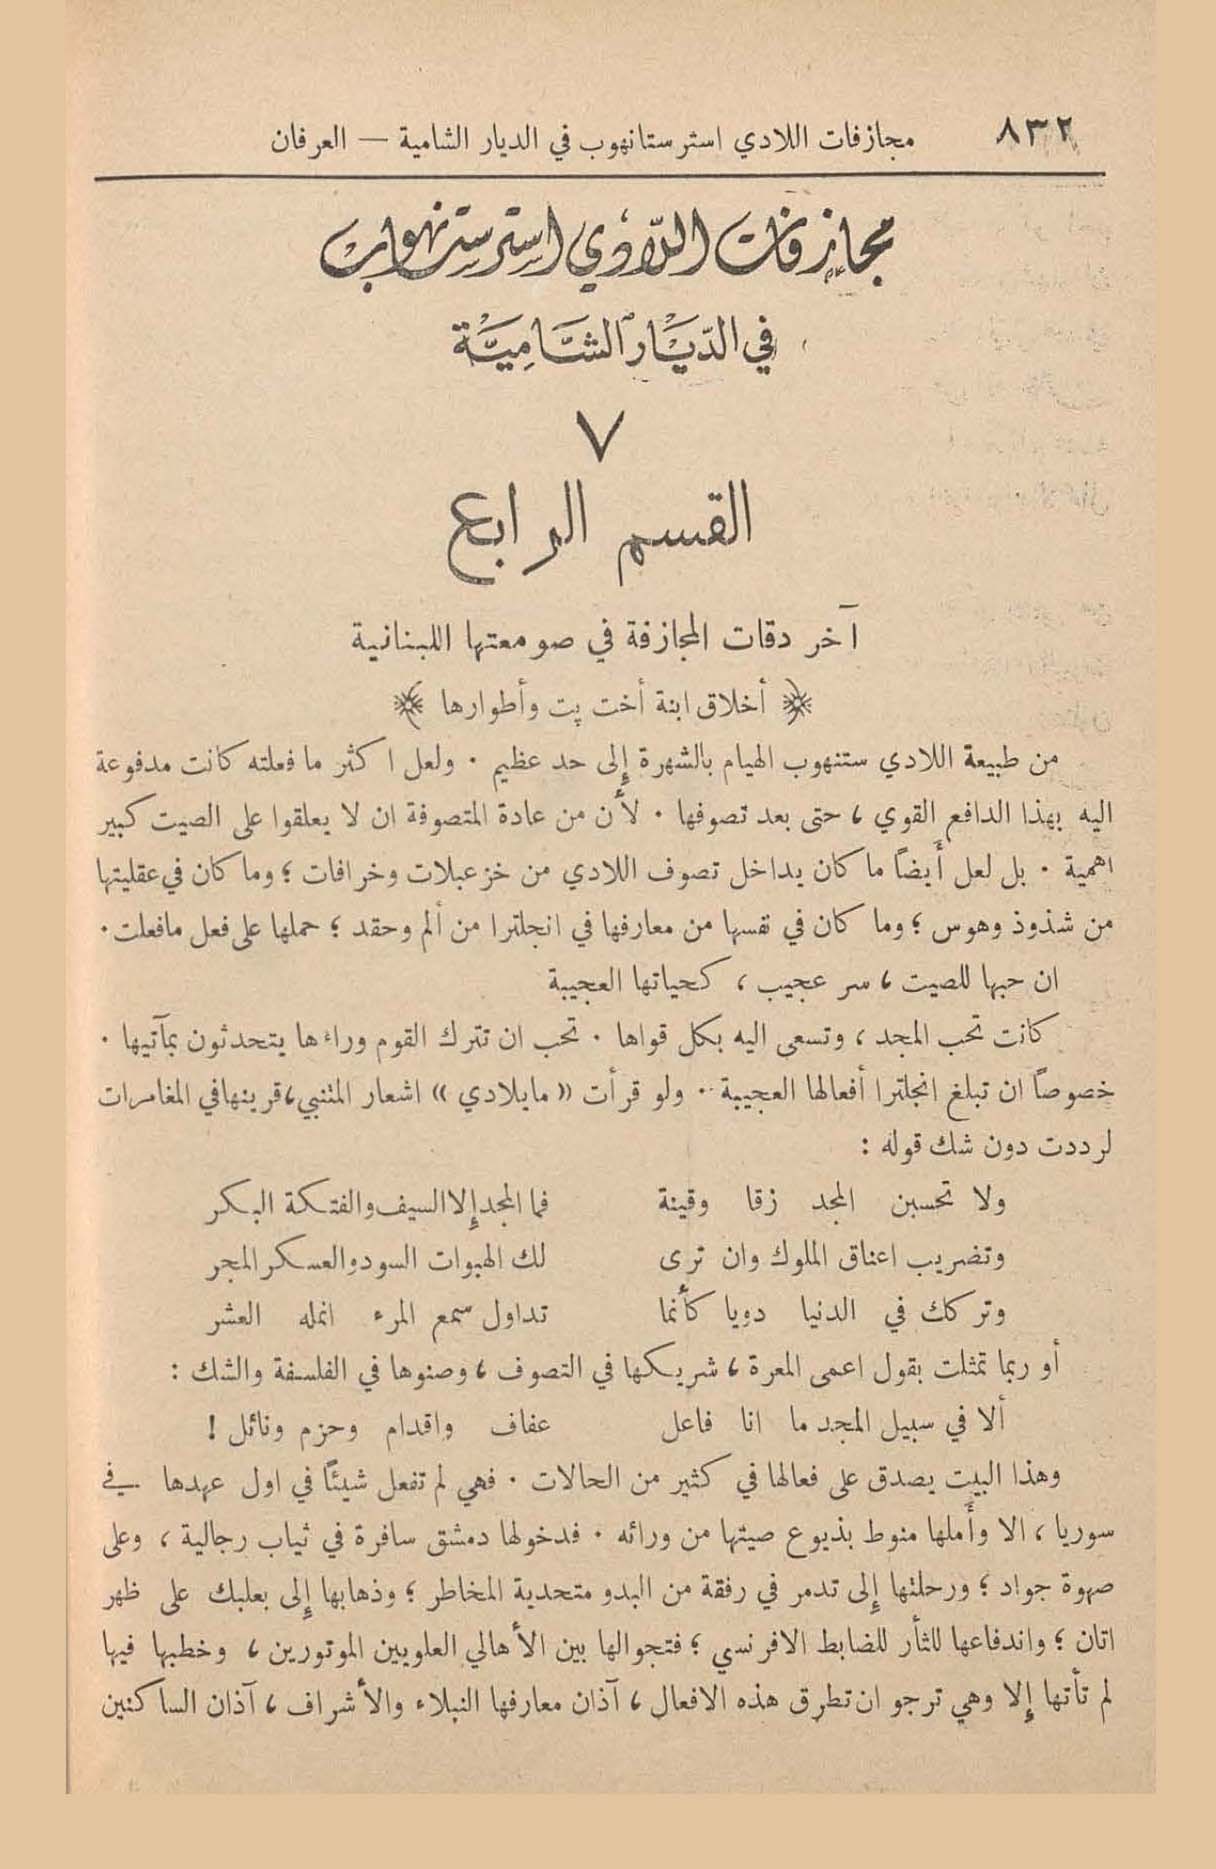 ٨٣٢ مجازفات اللادي استر ستانهوب في الديار الشامية — العرفان
مجازفات اللادي استر ستنهوب
في الديار الشامية
٧
القسم الرابع
آخر دقات المجازفة في صومعتها اللبنانية
أخلاق ابنة أخت پت وأطوارها
من طبيعة اللادي ستنهوب الهيام بالشهرة إلى حد عظيم . ولعل اكثر ما فعلته كانت مدفوعة
اليه بهذا الدافع القوي ، حتى بعد تصوفها . لأن من عادة المتصوفة ان لا يعلقوا على الصيت كبير
اهمية . بل لعل أيضاً ما كان يداخل تصوف اللادي من خزعبلات وخرافات ؛ وما كان في عقليتها
من شذوذ وهوس ؛ وما كان في نفسها من معارفها في انجلترا من ألم وحقد ؛ حملها على فعل مافعلت .
ان حبها للصيت ، سر عجيب ، كحياتها العجيبة
كانت تحب المجد ، وتسعى اليه بكل قواها . تحب ان تترك القوم وراءها يتحدثون بمآتيها .
خصوصاً ان تبلغ انجلترا أفعالها العجيبة .. ولو قرأت «مايلادي» اشعار المتنبي، قرينها في المغامرات
لرددت دون شك قوله :
ولا تحسبن المجد زقا وقينة فما المجد إلا السيف والفتكة البكر
وتضريب اعناق الملوك وان ترى لك الهبوات السود والعسكر المجر
وتركك في الدنيا دويا كأنما تداول سمع المرء انمله العشر
أو ربما تمثلت بقول اعمى المعرة ، شريكها في التصوف ، وصنوها في الفلسفة والشك :
ألا في سبيل المجد ما انا فاعل عفاف واقدام وحزم ونائل !
وهذا البيت يصدق على فعالها في كثير من الحالات . فهي لم تفعل شيئاً في اول عهدها في
سوريا ، الا وأملها منوط بذيوع صيتها من ورائه . فدخولها دمشق سافرة في ثياب رجالية ، وعلى
صهوة جواد ؛ ورحلتها إلى تدمر في رفقة من البدو متحدية المخاطر ؛ وذهابها إلى بعلبك على ظهر
اتان ؛ واندفاعها للثأر للضابط الافرنسي ؛ فتجوالها بين الأهالي العلويين الموتورين ، وخطبها فيها
لم تأتها إلا وهي ترجو ان تطرق هذه الافعال ، آذان معارفها النبلاء والأشراف ، آذان الساكنين